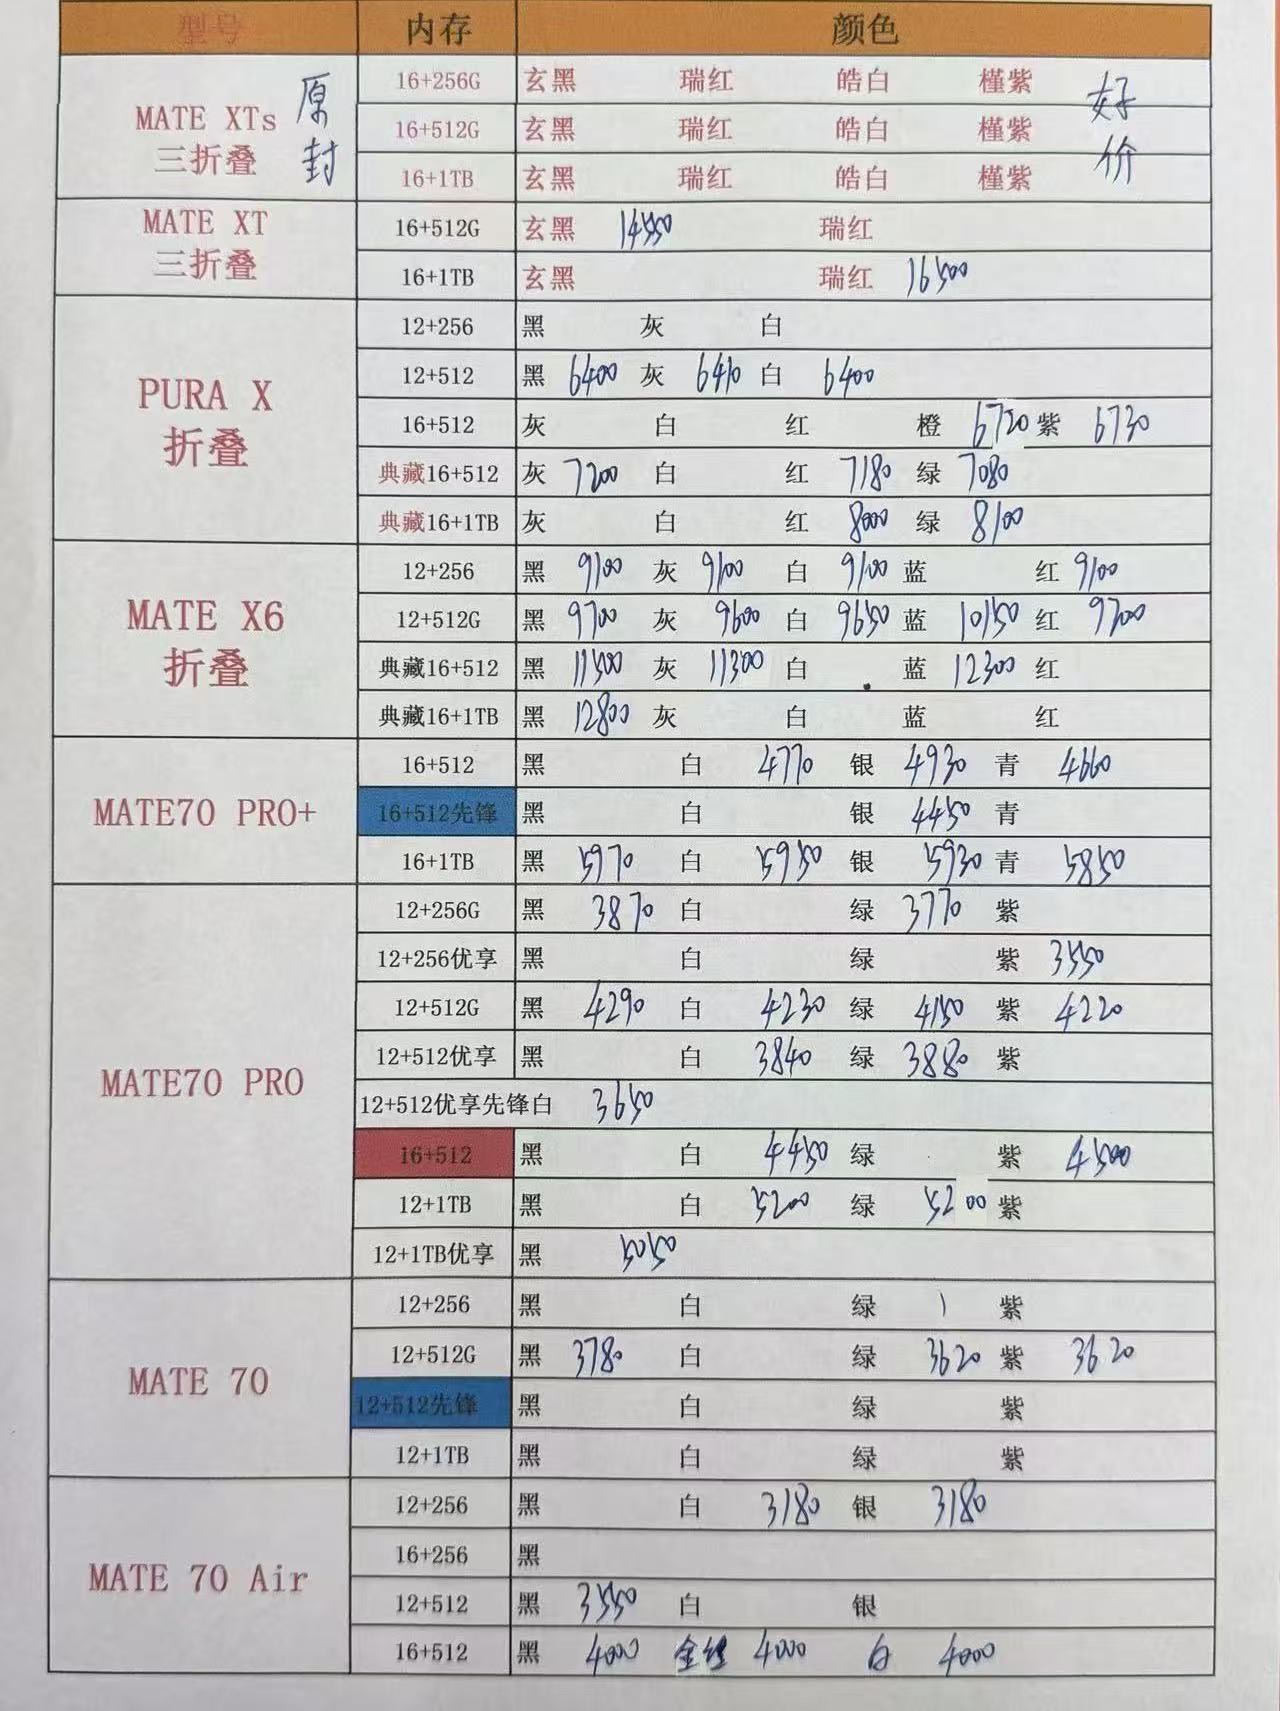 型号 内存 颜色
MATE XTs 三折叠 原封 16+256G 玄黑 瑞红 皓白 槿紫 好价
16+512G 玄黑 瑞红 皓白 槿紫
16+1TB 玄黑 瑞红 皓白 槿紫
MATE XT 三折叠 16+512G 玄黑 14550 瑞红
16+1TB 玄黑 瑞红 16500
PURA X 折叠 12+256 黑 灰 白
12+512 黑 6400 灰 6410 白 6400
16+512 灰 白 红 橙 6720 紫 6730
典藏16+512 灰 7200 白 红 7180 绿 7080
典藏16+1TB 灰 白 红 8000 绿 8100
MATE X6 折叠 12+256 黑 9100 灰 9100 白 9100 蓝 红 9100
12+512G 黑 9700 灰 9600 白 9650 蓝 10150 红 9700
典藏16+512 黑 11500 灰 11300 白 蓝 12300 红
典藏16+1TB 黑 12800 灰 白 蓝 红
MATE70 PRO+ 16+512 黑 白 4770 银 4930 青 4660
16+512先锋 黑 白 银 4450 青
16+1TB 黑 5970 白 5950 银 5930 青 5850
MATE70 PRO 12+256G 黑 3870 白 绿 3770 紫
12+256优享 黑 白 绿 紫 3550
12+512G 黑 4290 白 4230 绿 4150 紫 4220
12+512优享 黑 白 3840 绿 3880 紫
12+512优享先锋白 3650
16+512 黑 白 4450 绿 紫 4500
12+1TB 黑 白 5200 绿 5200 紫
12+1TB优享 黑 5050
MATE 70 12+256 黑 白 绿 紫
12+512G 黑 3780 白 绿 3620 紫 3620
12+512先锋 黑 白 绿 紫
12+1TB 黑 白 绿 紫
MATE 70 Air 12+256 黑 白 3180 银 3180
16+256 黑
12+512 黑 3550 白 银
16+512 黑 4000 金 4000 白 4000